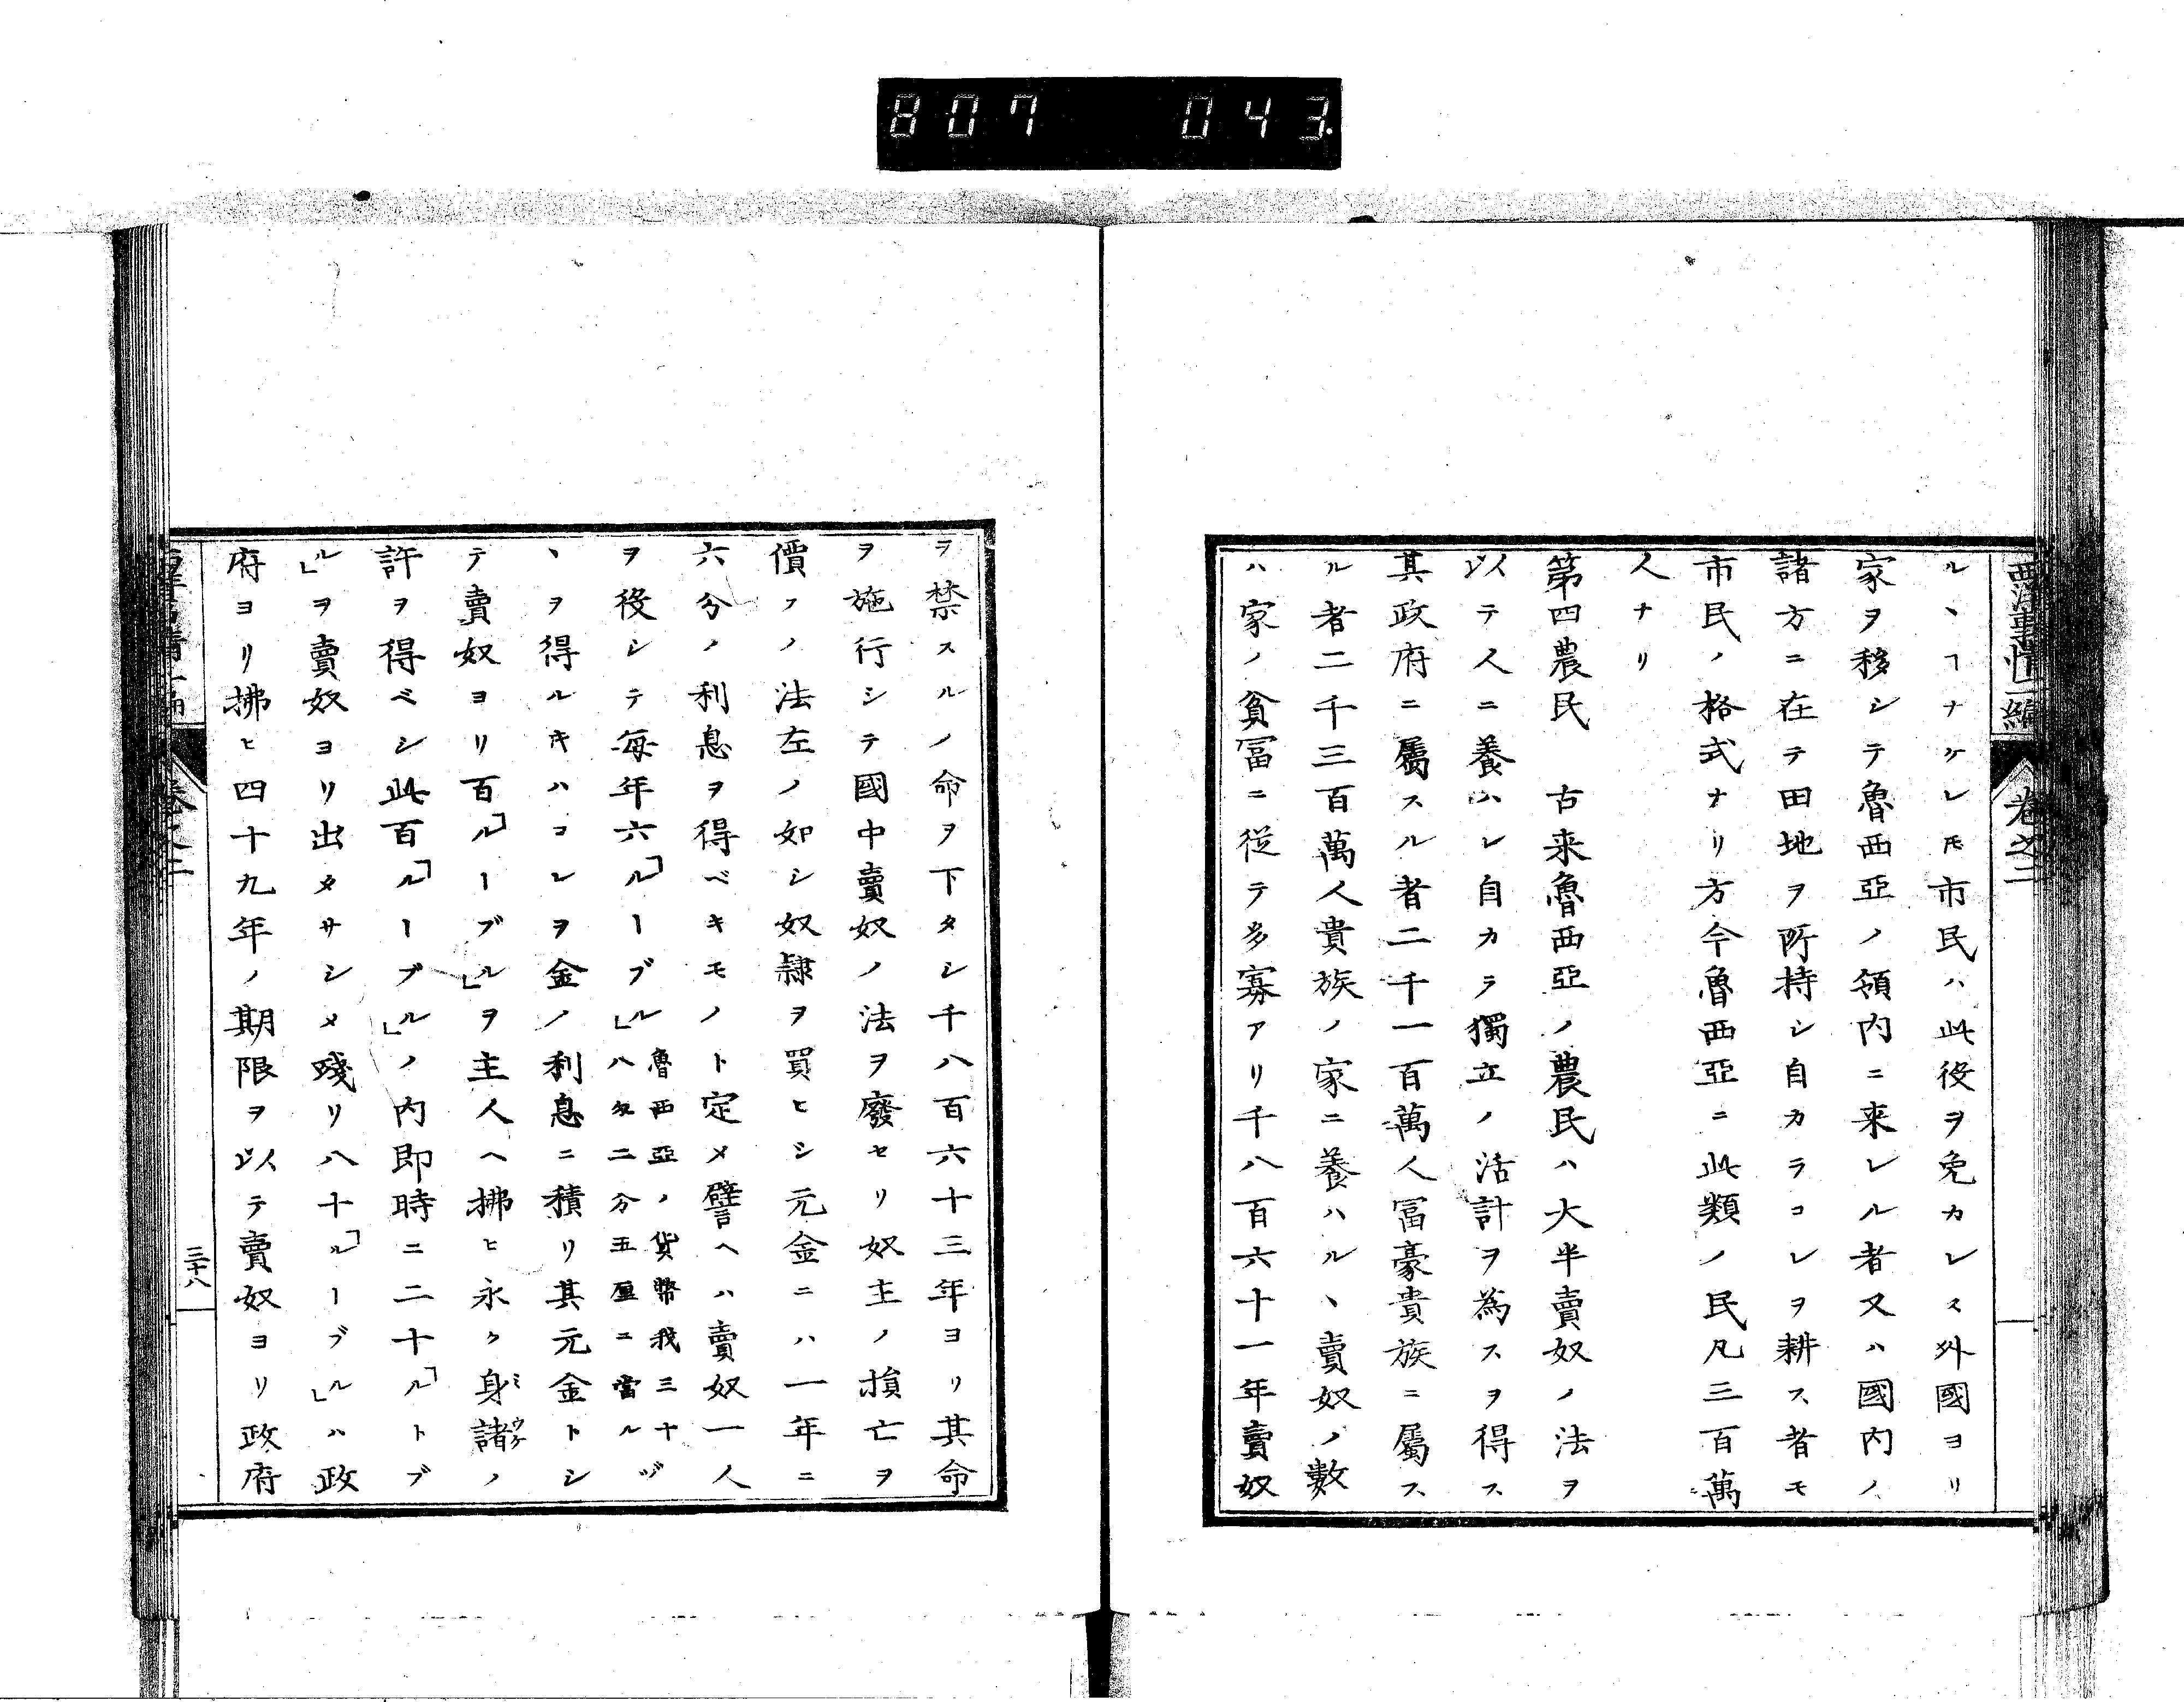 807 043.
西洋事情二編 卷之二
ルヽヿナケレ𪜈市民ハ此役ヲ免カレス外國ヨリ
家ヲ移シテ魯西亞ノ領内ニ来レル者又ハ國内ノ
諸方ニ在テ田地ヲ所持シ自カラコレヲ耕ス者モ
市民ノ格式ナリ方今魯西亞ニ此類ノ民凡三百萬
人ナリ
第四農民　古来魯西亞ノ農民ハ大半賣奴ノ法ヲ
以テ人ニ養ハレ自カラ獨立ノ活計ヲ為スヲ得ス
其政府ニ屬スル者二千一百萬人冨豪貴族ニ屬ス
ル者二千三百萬人貴族ノ家ニ養ハルヽ賣奴ノ數
ハ家ノ貧冨ニ從テ多寡アリ千八百六十一年賣奴
ヲ禁スルノ命ヲ下タシ千八百六十三年ヨリ其命
ヲ施行シテ國中賣奴ノ法ヲ廢セリ奴主ノ損亡ヲ
價フノ法左ノ如シ奴隷ヲ買ヒシ元金ニハ一年ニ
六分ノ利息ヲ得ベキモノト定メ譬ヘハ賣奴一人
ヲ役シテ每年六「ルーブル」魯西亞ノ貨幣我三十八匁二分五厘ニ當ルヅ
ヽヲ得ルキハコレヲ金ノ利息ニ積リ其元金トシ
テ賣奴ヨリ百「ルーブル」ヲ主人ヘ拂ヒ永ク身諸ノ
許ヲ得ベシ此百「ルーブル」ノ内即時ニ二十「ルトブ
ル」ヲ賣奴ヨリ出タサシメ殘リ八十「ルーブル」ハ政
府ヨリ拂ヒ四十九年ノ期限ヲ以テ賣奴ヨリ政府
卷之二
三十八